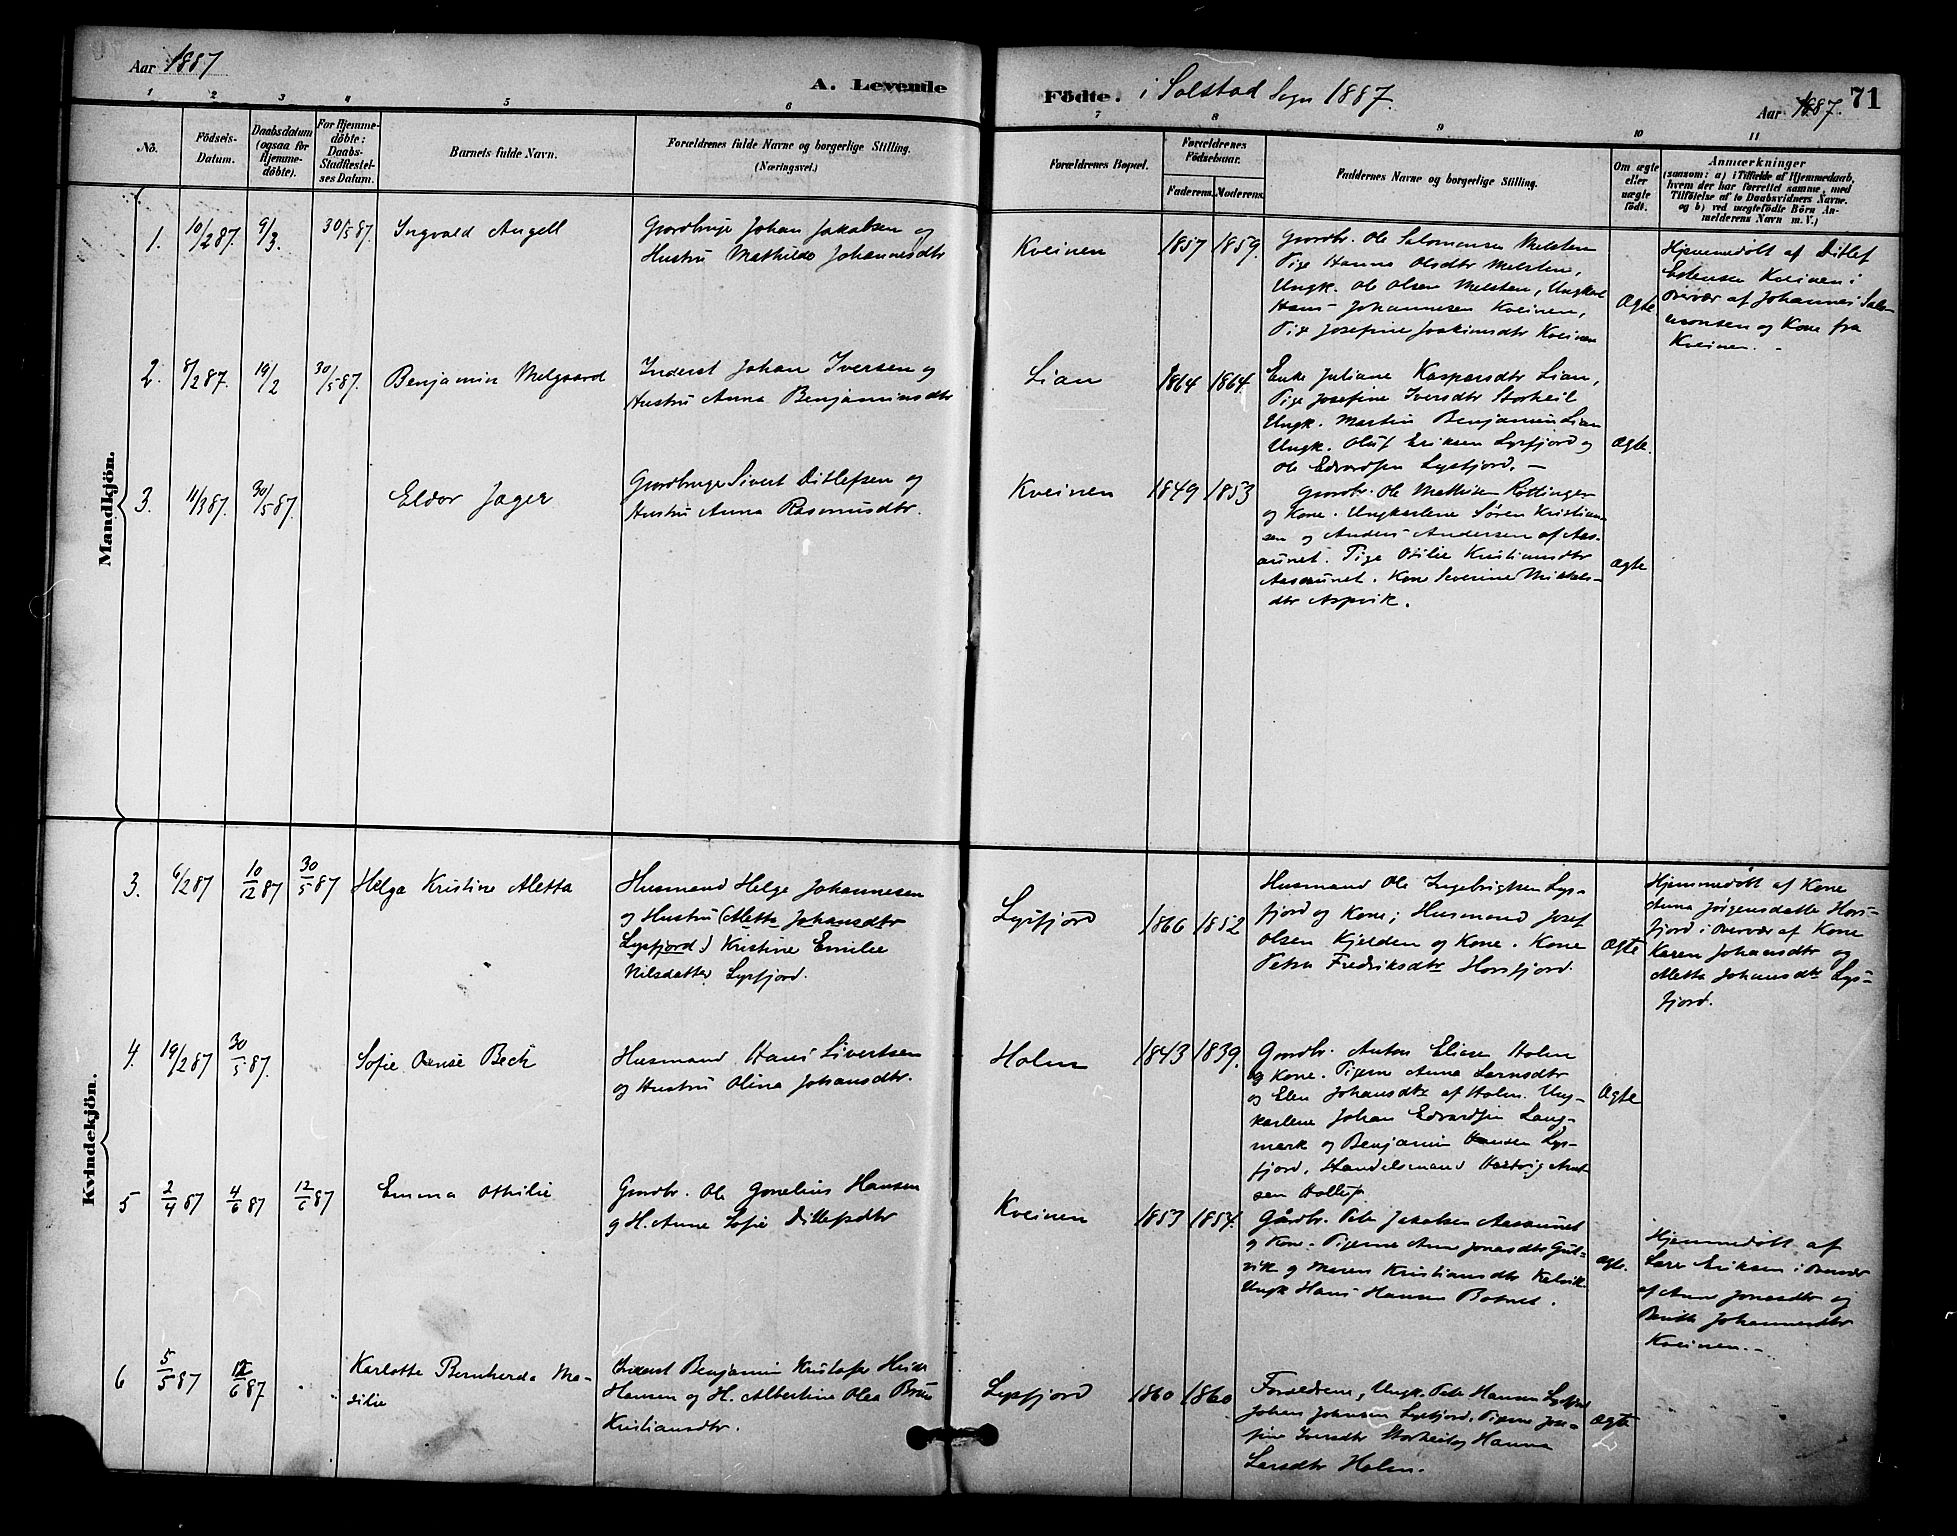 Aar 1887
A. Levende
Födte. i Solstad Sogn 1887.
Aar 1887.
71
1 2 3 4 5 6 7 8 9 10 11
No.
Födsels-
Datum.
Daabsdatum
(ogsaa for
Hjemme-
döbte).
For Hjemme-
döbte:
Daabs-
Stadfæstel-
ses Datum.
Barnets fulde Navn.
Forældrenes fulde Navne og borgerlige Stilling.
(Næringsvei.)
Forældrenes Bopæl.
Forældrenes
Födselsaar.
Faderens. Moderens.
Faddernes Navne og borgerlige Stilling.
Om ægte
eller
uægte
födt.
Anmærkninger
(saasom: a) i Tilfælde af Hjemmedaab,
hvem der har forrettet samme, med
Tilföielse af to Daabsvidners Navne.
og b) ved uægtefödte Börn An-
melderens Navn m. V.)
Mandkjön.
1. 10/2 87. 9/3. 30/5 87. Ingvald Angell
Gaardbruge Johan Jakobsen og
Hustru Mathilde Johannesdtr
Kveinen 1857 1859.
Gaardbr. Ole Salomonsen Melsten
Pige Hanna Olsdtr Melsten,
Ungk. Ole Olsen Melsten, Ungkarl
Hans Johannesen Kveinen,
Pige Josefine Joakimsdtr Kveinen
Ægte
Hjemmedøbt af Ditlef
Estensen Kveinen i
overvær af Johannes Salo-
monsen og Kone fra
Kveinen.
2. 8/2 87. 19/2 30/5 87. Benjamin Melgaard
Inderst Johan Iversen og
Hustru Anna Benjaminsdtr
Lian 1864 1864.
Enke Juliane Kaspersdtr Lian,
Pige Josefine Iversdtr Storheil
Ungk. Martin Benjaminsen Lian
Ungk. Oluf Eriksen Lysfjord og
Ole Edvardsen Lysfjord. —
Ægte.
3. 11/3 87. 30/5 87. Eldor Jager
Gaardbruge Sivert Ditlefsen og
Hustru Anna Rasmusdtr.
Kveinen 1849 1853
Gaardbr. Ole Mathisen Røttingen
og Kone. Ungkarlene Søren Kristian-
sen og Anders Andersen af Aas-
aunet. Pige Otilie Kristiansdtr
Aasaunet. Kone Severine Mikkels-
dtr Aspvik.
Ægte
Kvindekjön.
3. 6/2 87 10/12 87 30/5 87 Helga Kristine Aletta
Husmand Helge Johannesen
og Hustru (Aletta Johansdtr
Lysfjord.) Kristine Emilie
Nilsdatter Lysfjord.
Lysfjord 1866 1852
Husmand Ole Ingebrigtsen Lys-
fjord og Kone; Husmand Josef
Olsen Kjelden og Kone. Kone
Petra Fredriksdtr Horsfjord.
Ægte
Hjemmedøbt af Kone
Anna Jørgensdatter Hors-
fjord i overvær af Kone
Karen Johansdtr og
Aletta Johansdtr Lys-
fjord.
4. 19/2 87 30/5 87. Sofie Beck
Husmand Hans Sivertsen
og Hustru Olina Johansdtr.
Holm 1843 1839.
Gaardbr. Anton Eliasen Holm
og Kone. Pigerne Anna Larsdtr
og Elen Johansdtr af Holm. Ung-
karlene Johan Edvardsen Lang-
mark og Benjamin Hansen Lys-
fjord, Handelsmand Hartvig
sen Hollup.
Ægte
5 2/4 87 4/6 87 12/6 87 Emma Othilie
Gaardbr. Ole Gorelius Hansen
og H. Anne Sofie Ditlefsdtr
Kveinen 1853 1854.
Gårdbr. Peter Jakobsen Aasaunet
og Kone. Pigerne Ane Jonasdtr Gut-
vik og Maren Kristiansdtr Kalvik.
Ungk Hans Hansen Botnet.
Ægte.
Hjemmedøbt af
Lars Eriksen i overvær
af Ane Jonasdtr og
Johannesdtr
Kveinen.
6 5/5 87 12/6 87 Karlotte Bernharda Ma-
silie
Inderst Benjamin Kristofer
Hansen og H. Albertine Olea
Kristiansdtr.
Lysfjord 1860 1860
Forældrene, Ungk. Peter Hansen Lysfjord
Johan Johansen Lysfjord. Pigerne Jose-
fine Iversdtr Storheil og Hanna
Larsdtr Holm.
Ægte